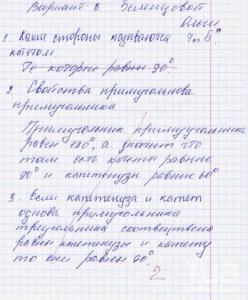 Вариант 3. Земенцовой
Ольги
7 "Б"
1. Какие стороны называются
катетом.
Те которые равны 90°
2. Свойства примуголнова
примуголника.
Примуголник примугуголника
равен 180°, а значит что
там есть катеты равные
90° и капетнузы равные 60°
3. Если капетнуза и катет
однова примуголника
треуголника соотвецтвена
равны капетнузы и катету
то они равны 90°
2